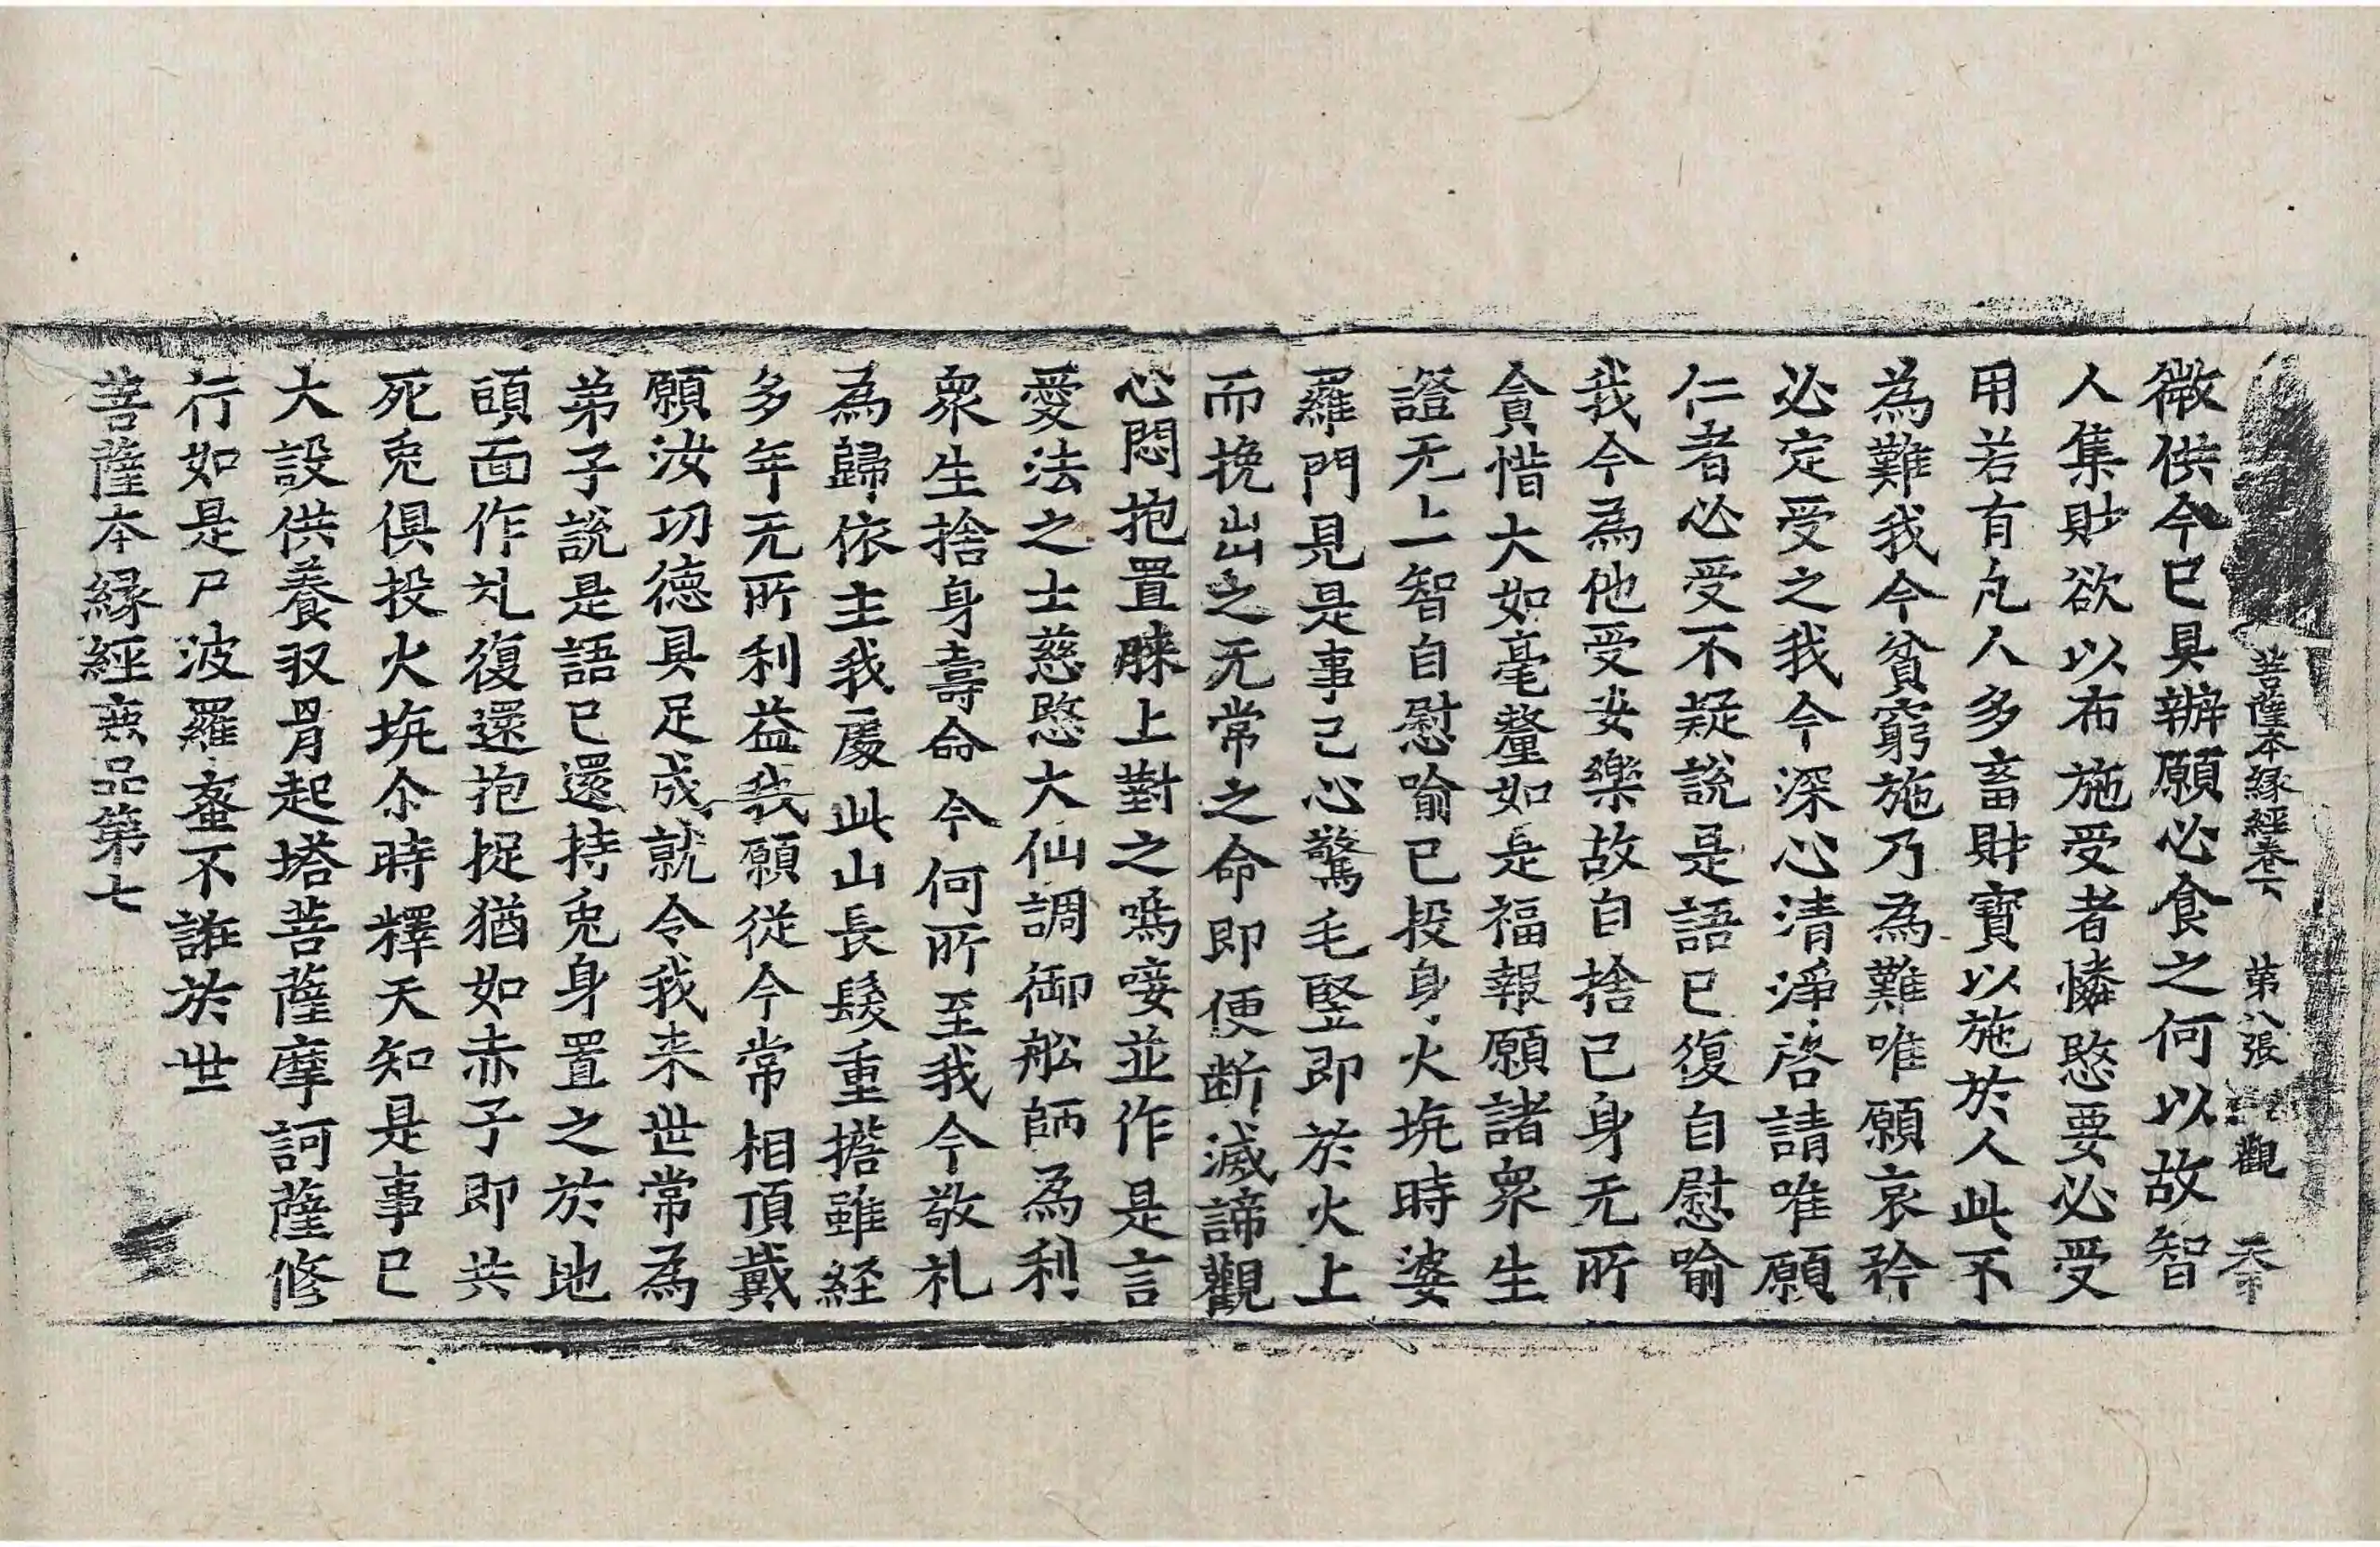 菩薩本縁經卷下 第八張 觀
微供今已具辦願必食之何以故智
人集財欲以布施受者憐愍要必受
用若有凡人多畜財寶以施於人此不
為難我今貧窮施乃為難唯願哀矜
必定受之我今深心清淨啓請唯願
仁者必受不疑說是語已復自慰喻
我今為他受安樂故自捨己身无所
貪惜大如毫釐如是福報願諸衆生
證无上智自慰喻已投身火坑時婆
羅門見是事已心驚毛竪即於火上
而挽出之无常之命即便断滅諦觀
心悶抱置膝上對之嗚唼並作是言
愛法之士慈愍大仙調御舩師為利
衆生捨身壽命今何所至我今敬礼
為歸依主我處此山長髮重擔雖経
多年无所利益我願從今常相頂戴
願汝功德具足成就令我来世常為
弟子說是語已還持兎身置之於地
頭面作礼復還抱捉猶如赤子即共
死兎俱投火坑尒時釋天知是事已
大設供養収骨起塔菩薩摩訶薩修
行如是尸波羅蜜不誑於世
菩薩本縁經鹿品第七